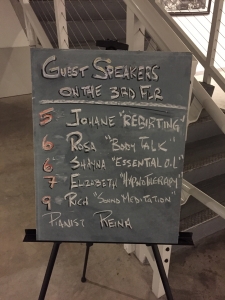 GUEST SPEAKERS
ON THE 3RD FLR
5 JOHANE "REBIRTING"
6 ROSA "BODY TALK"
6 SHAYNA "ESSENTIAL O.L"
7 ELIZABETH "HYPNOTHERAPY"
9 RICH "SOUND MEDITATION"
PIANIST REINA